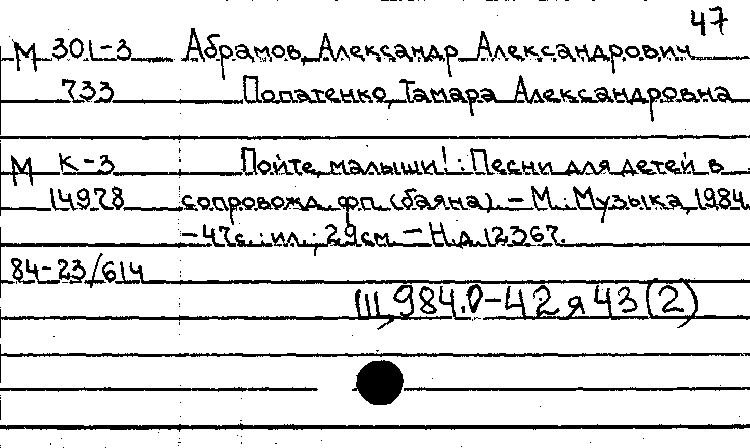 47
М 301-3 Абрамов, Александр Александрович
733 Попатенко, Тамара Александровна
М К-3 Пойте, малыши! : Песни для детей в
14978 сопровожд. фп. (баяна). – М. : Музыка, 1984.
– 47с. : ил. ; 29см. – Н.д. 12367.
84-23/614
Щ984.0-42я43(2)